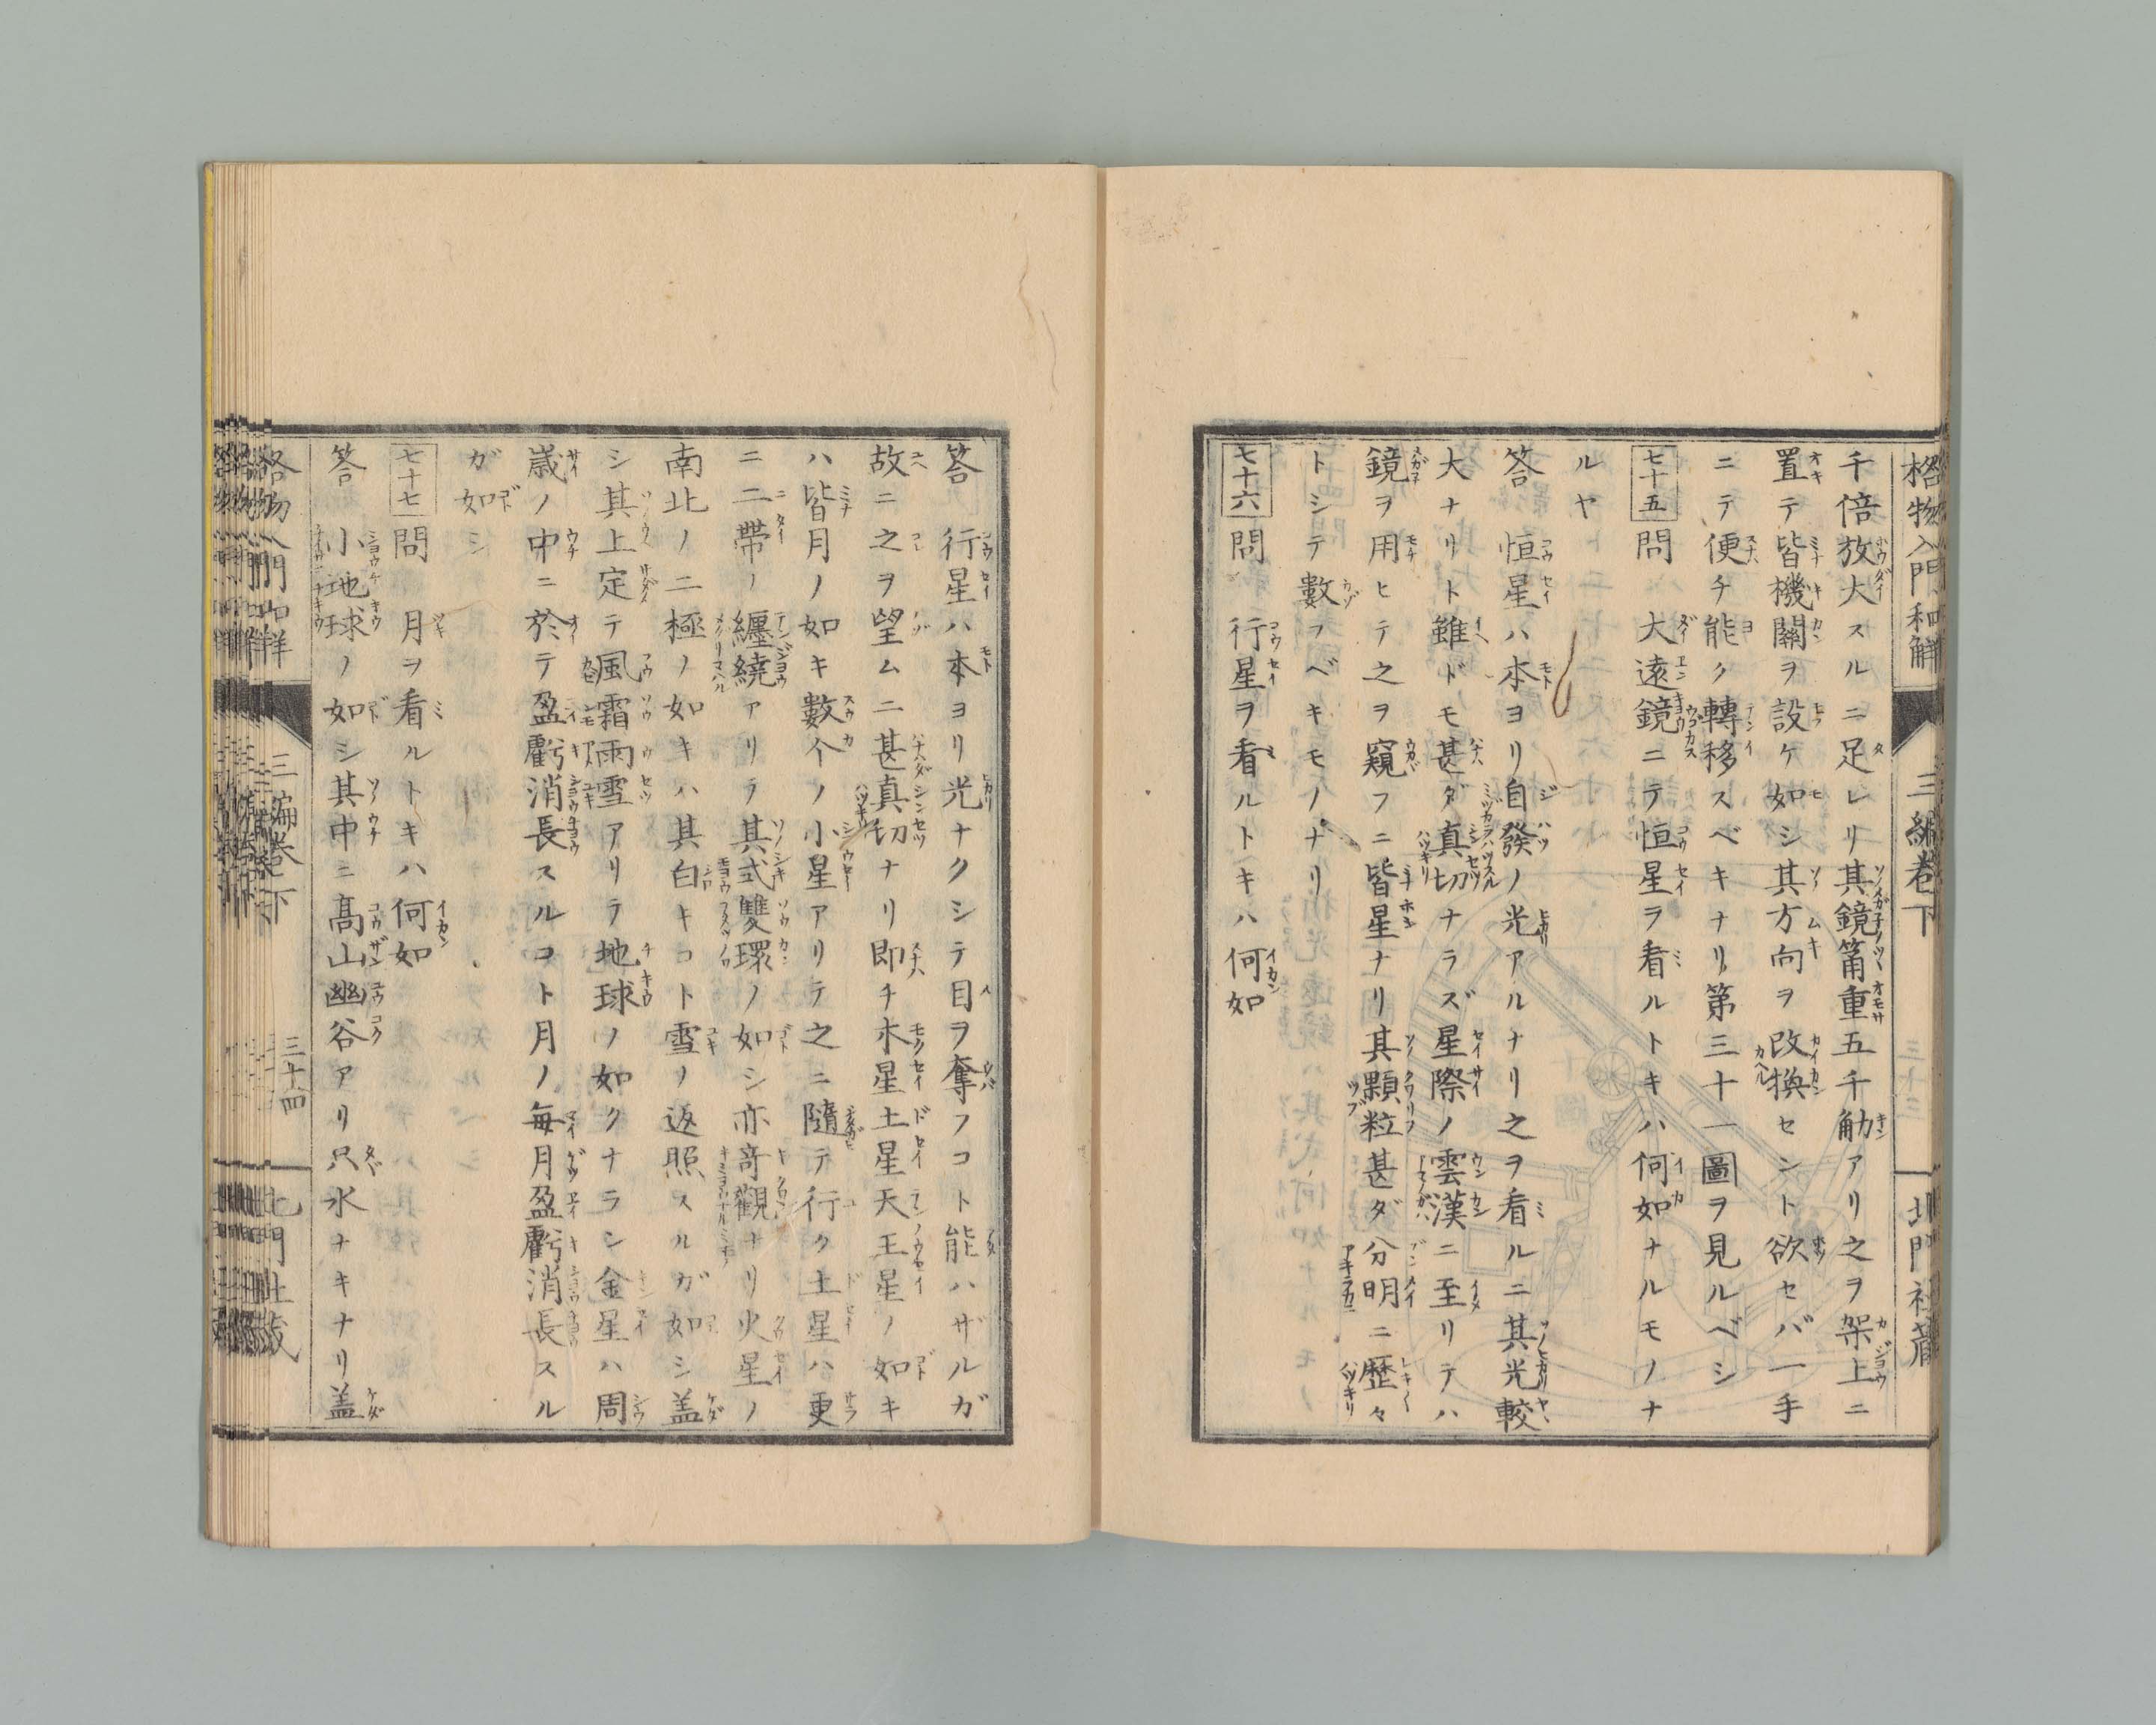 格物入門和解 三編卷下 三十三 北門社藏
千倍放大スルニ足レリ其鏡筩重五千觔アリ之ヲ架上ニ
置テ皆機關ヲ設ケ如シ其方向ヲ改換セント欲セバ一手
ニテ便チ能ク轉移スベキナリ第三十一圖ヲ見ルベシ
七十五 問 大遠鏡ニテ恒星ヲ看ルトキハ何如ナルモノナ
ルヤ
答 恒星ハ本ヨリ自發ノ光アルナリ之ヲ看ルニ其光較
大ナリト雖ドモ甚ダ真切ナラズ星際ノ雲漢ニ至リテハ
鏡ヲ用ヒテ之ヲ窺フニ皆星ナリ其顆粒甚ダ分明ニ歴々
トシテ數フベキモノナリ
七十六 問 行星ヲ看ルトキハ何如
答 行星ハ本ヨリ光ナクシテ目ヲ奪フコト能ハザルガ
故ニ之ヲ望ムニ甚真切ナリ即チ木星土星天王星ノ如キ
ハ皆月ノ如キ數个ノ小星アリテ之ニ隨テ行ク土星ハ更
ニ二帶ノ纏繞アリテ其式雙環ノ如シ亦奇觀ナリ火星ノ
南北ノ二極ノ如キハ其白キコト雪ノ返照スルガ如シ盖
シ其上定テ風霜雨雪アリテ地球ノ如クナラン金星ハ周
歳ノ中ニ於テ盈虧消長スルコト月ノ毎月盈虧消長スル
ガ如シ
七十七 問 月ヲ看ルトキハ何如
答 小地球ノ如シ其中ニ髙山幽谷アリ只水ナキナリ盖
三編卷下 三十四 北門社藏